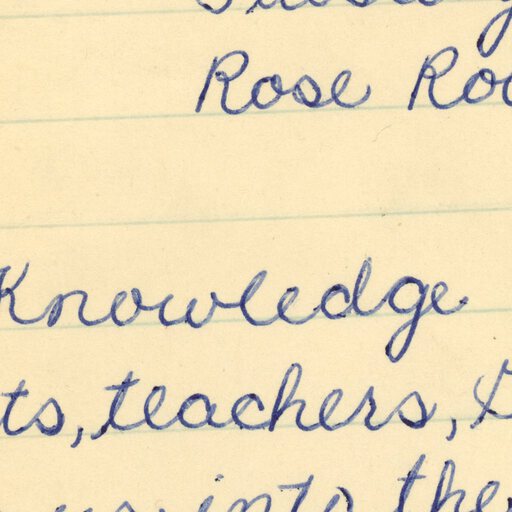 Rose
Knowledge
ts, teachers,
into the